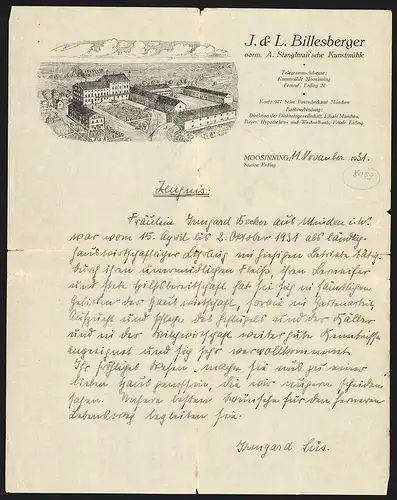 J. & L. Billesberger
vorm. A. Stanglmair'sche Kunstmühle
Telegramm-Adresse:
Kunstmühle Moosinning
Fernruf, Erding 27
Konto 977 beim Postscheckamt München
Bankverbindung:
Direktion der Diskontogesellschaft, Filiale München,
Bayer. Hypotheken- und Wechselbank, Filiale Erding
MOOSINNING, 11. November 1931.
Station Erding
Zeugnis.
Fräulein Irmgard Becker aus Minden i. W.
war vom 15. April bis 2. Oktober 1931 als ländlich-
hauswirtschaftlicher Lehrling im hiesigen Betriebe tätig.
Durch ihren unermüdlichen Fleiß, ihren Lerneifer
und stete Hilfsbereitschaft hat sie sich in sämtlichen
Gebieten der Hauswirtschaft, sowie in Gartenarbeit,
Aufzucht und Pflege des Geflügels und der Kälber
und in der Milchwirtschaft weiter gute Kenntnisse
angeeignet und sich sehr vervollkommnet.
Ihr fröhliches Wesen machte sie uns zu einer
lieben Hausgenossin, die wir ungern scheiden
sahen. Unsere besten Wünsche für den ferneren
Lebensweg begleiten sie.
Irmgard